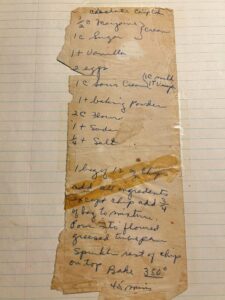 Chocolate Chip
½ C Margarine } Cream
1 C Sugar
1 t Vanilla
2 eggs
1 C Sour Cream (1C milk
1 T Vinegar
1 t baking Powder
2 C Flour
1 t Soda
½ t Salt
1 bag 12 oz Chips
add all ingredients
except chip add ¾
of bag to mixture.
Pour into floured
greased tube pan
Sprinkle rest of chips
on top Bake 350°
45 mins